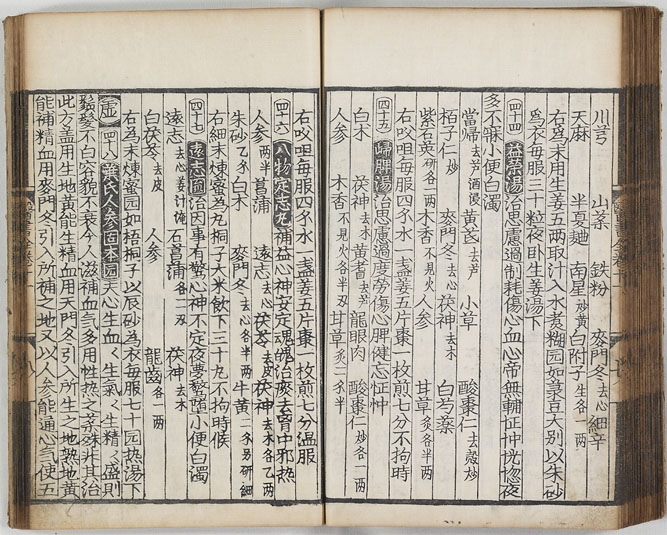 川芎　山藥　鉄粉　麥門冬去心　細辛
天麻　半夏麯　南星炒黄　白附子生各一両
右為末用生姜五両取汁入水煮糊园如菉豆大別以朱砂
為衣每服三十粒夜卧生姜湯下
四十四　益榮湯治思慮過制耗傷心血心帝無輔怔忡恍惚夜
多不寐小便白濁
當帰去芦酒浸　黃芪去芦　小草　酸棗仁去殼炒
栢子仁炒　麥門冬去心　茯神去木　白芍薬
紫石英研各一両　木香不見火　人参　甘草炙各半両
右㕮咀每服四㦮水一盞姜五片棗一枚煎七分不拘時
四十五　歸脾湯治思慮過度労傷心脾健忘怔忡
白木　茯神去木　黃耆去芦　龍眼肉　酸棗仁炒各一両
人参　木香不見火各半両　甘草炙二㦮半
右㕮咀每服四㦮水一盞姜五片棗一枚煎七分温服
四十六　八物定志丸補益心神安定魂魄治痰去胷中邪热
人参両半　菖蒲　遠志去心　茯苓去皮　茯神去木各乙両
朱砂乙㦮　白木　麥門冬去心各半両　牛黃二㦮另研細
右細末煉蜜為丸桐子大米飲下三十九不拘時候
四十七　遠志园治因事有驚心神不定夜夢驚墮小便白濁
遠志去心姜汁淹　石菖蒲各二両　茯神去木
白茯苓去皮　人参　龍齒各一両
右為末煉蜜园如梧桐子以辰砂為衣每服七十园热湯下
虛　四十八　羅氏人参固本园夫心生血く生氣く生精く盛則
鬚髮不白容貌不衰今人滋補血氣多用性热之薬殊非其治
此方盖用生地黃能生精血用天門冬引入所生之地熟地黃
能補精血用麥門冬引入所補之地又以人参能通心氣使五